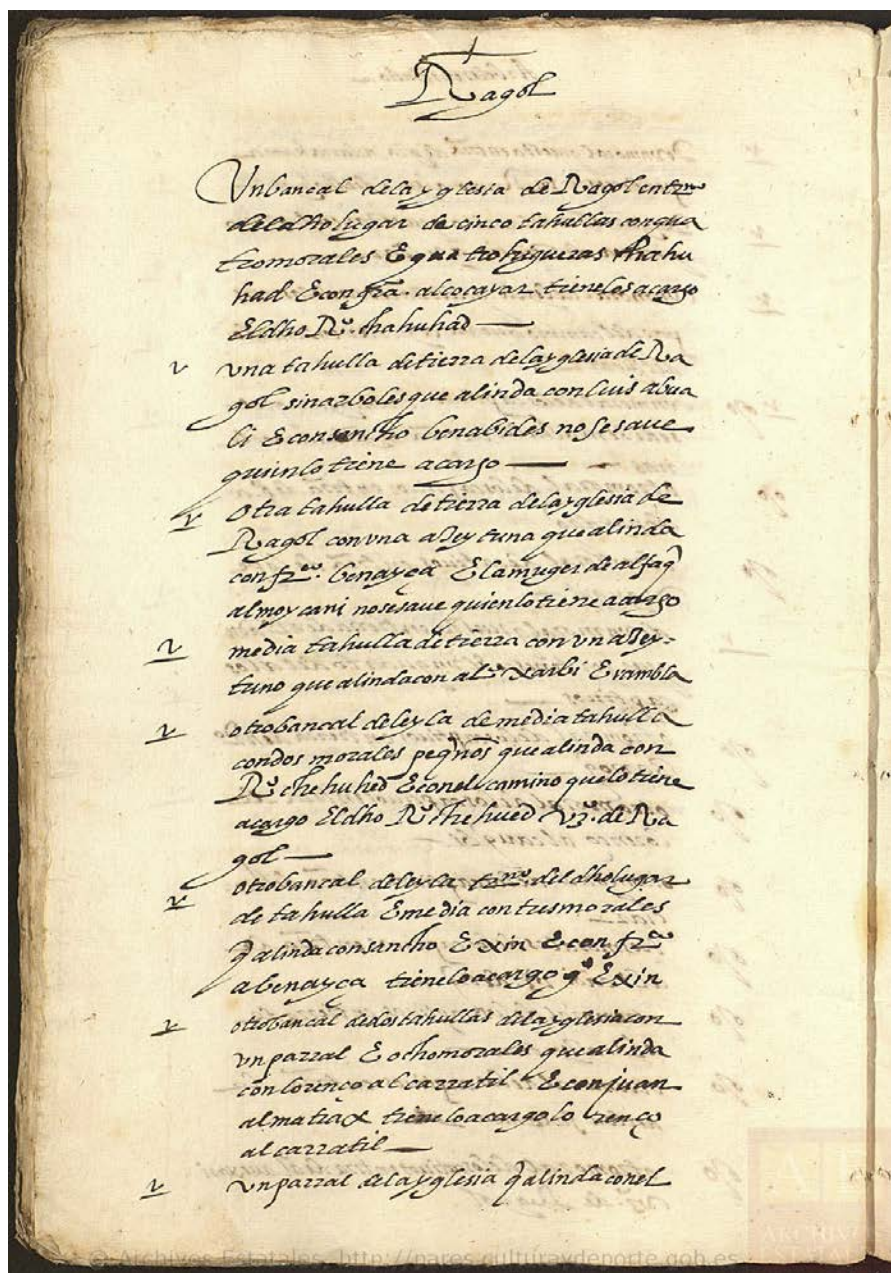 Ragol
Un bancal de la yglesia de Ragol en trno
del dho lugar de cinco tahullas con qua
tro morales E qua tro higueras
had E con frā. alcocayar tienelos acargo
El dho Ro. chahuhad
v una tahulla de tierra de la yglesia de Ra
gol sin arboles que alinda con luis abua
li E con sancho benabides no se save
quien lo tiene acargo
v otra tahulla de tierra de la yglesia de
Ragol con una azeytuna que alinda
con frco. benayça E la muger de alfaq̄
almoycani no se save quien lo tiene acargo
v media tahulla de tierra con un azey-
tuno que alinda con alo xarbi E rambla
v otro bancal de leyla de media tahulla
con dos morales peqnos que alinda con
Ro chehuhed E con el camino que lo tiene
acargo El dho Ro chehued vzo. de Ra
gol
v otro bancal de leyla trno del dho lugar
de tahulla E media con tres morales
q̄ alinda con sancho Exin E con frco
abenayça tienelo acargo go Exin
v otro bancal de dos tahullas de la yglesia con
un parral E ocho morales que alinda
con lorenço alcarratil E con juan
almatrax tienelo acargo lorenço
alcarratil
v un parral de la yglesia q̄ alinda con el
© Archivos Estatales, http://pares.culturaydeporte.gob.es